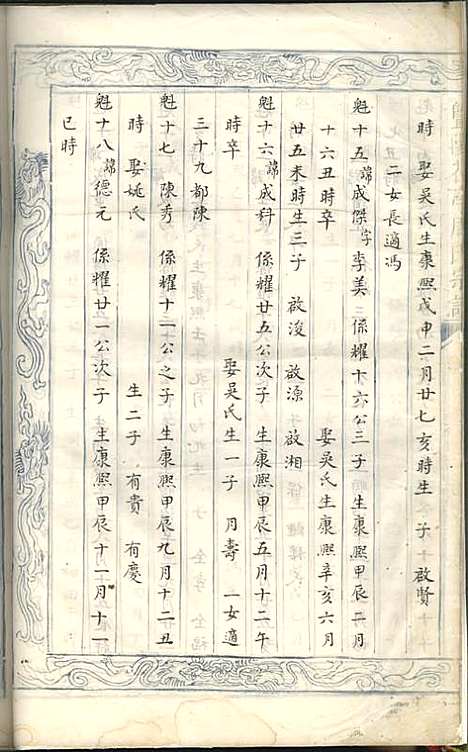 時 娶吳氏生康熙戊申二月廿七亥時生 子 啟賢
二女長適馮
魁十五 諱成傑 字李美 係耀十六公三子 生康熙甲辰 月
十六丑時卒 娶吳氏生康熙辛亥六月
廿五未時生三子 啟浚 啟源 啟湘
魁十六 諱成科 係耀廿五公次子 生康熙甲辰五月十二午
時卒 娶吳氏生一子 月壽 一女適
三十九都陳
魁十七 陳秀 係耀十二公之子 生康熙甲辰九月十二丑
時 娶姚氏 生二子 有貴 有慶
魁十八 諱德元 係耀廿一公次子 生康熙甲辰十一月十一
巳時